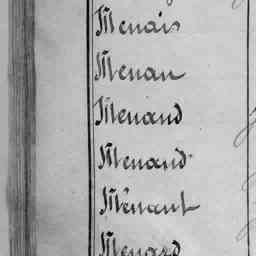 Menais
Menan
Menand
Menand
Menant
Menard